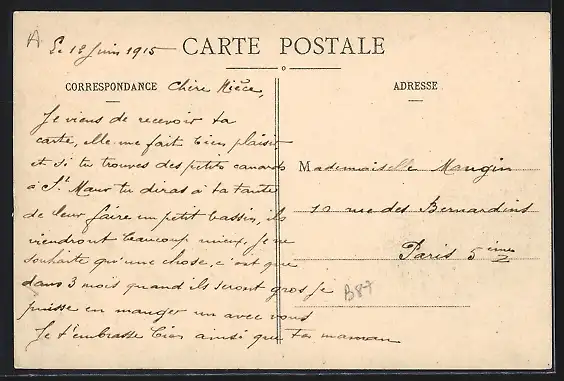 Le 18 Juin 1915
CARTE POSTALE
CORRESPONDANCE
Chère Nièce,
ADRESSE
Je viens de recevoir ta
carte, elle me fait bien plaisir
et si tu trouves des petits canards
à St Maur tu diras à ta tante
de leur faire un petit bassin, ils
viendront beaucoup mieux. Je ne
souhaite qu'une chose, c'est que
dans 3 mois quand ils seront gros je
puisse en manger un avec vous
Je t'embrasse bien ainsi que ta maman
Mademoiselle Mangin
rue des Bernardins
Paris 5ème
B87